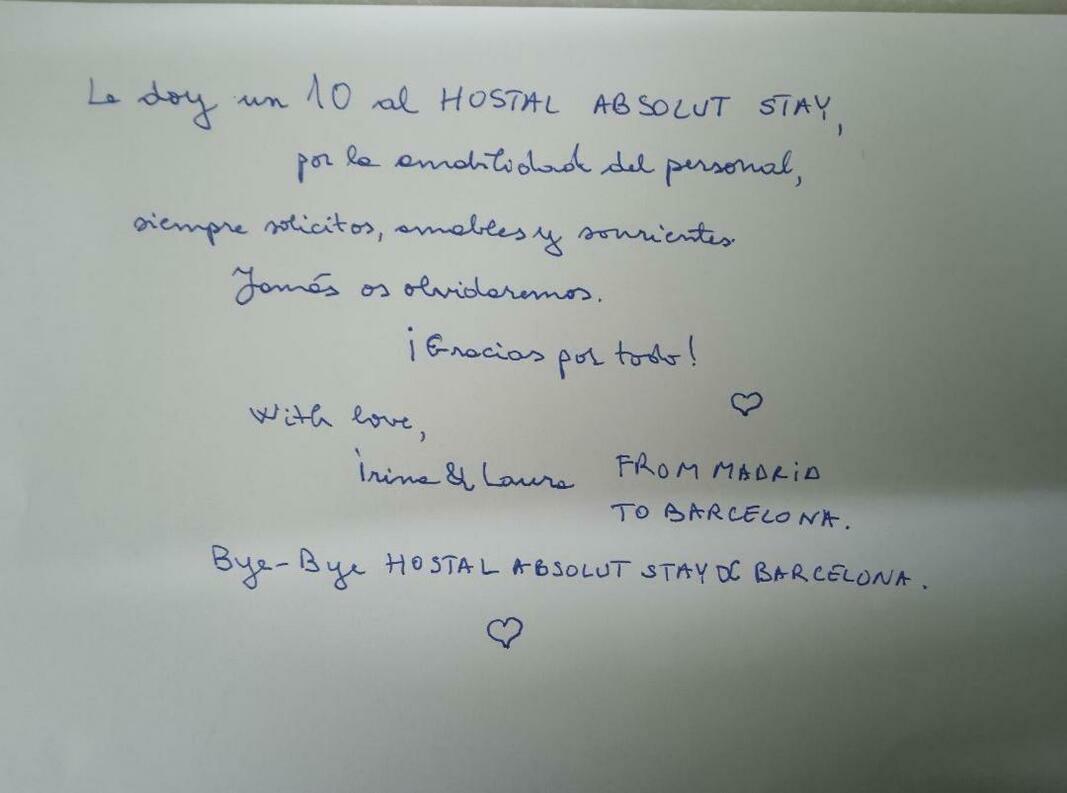 Le doy un 10 al HOSTAL ABSOLUT STAY,
por la amabilidad del personal,
siempre solicitos, amables y sonrientes.
Jamás os olvidaremos.
¡Gracias por todo!
With love,
Irina & Laura FROM MADRID
TO BARCELONA.
Bye-Bye HOSTAL ABSOLUT STAY DE BARCELONA.